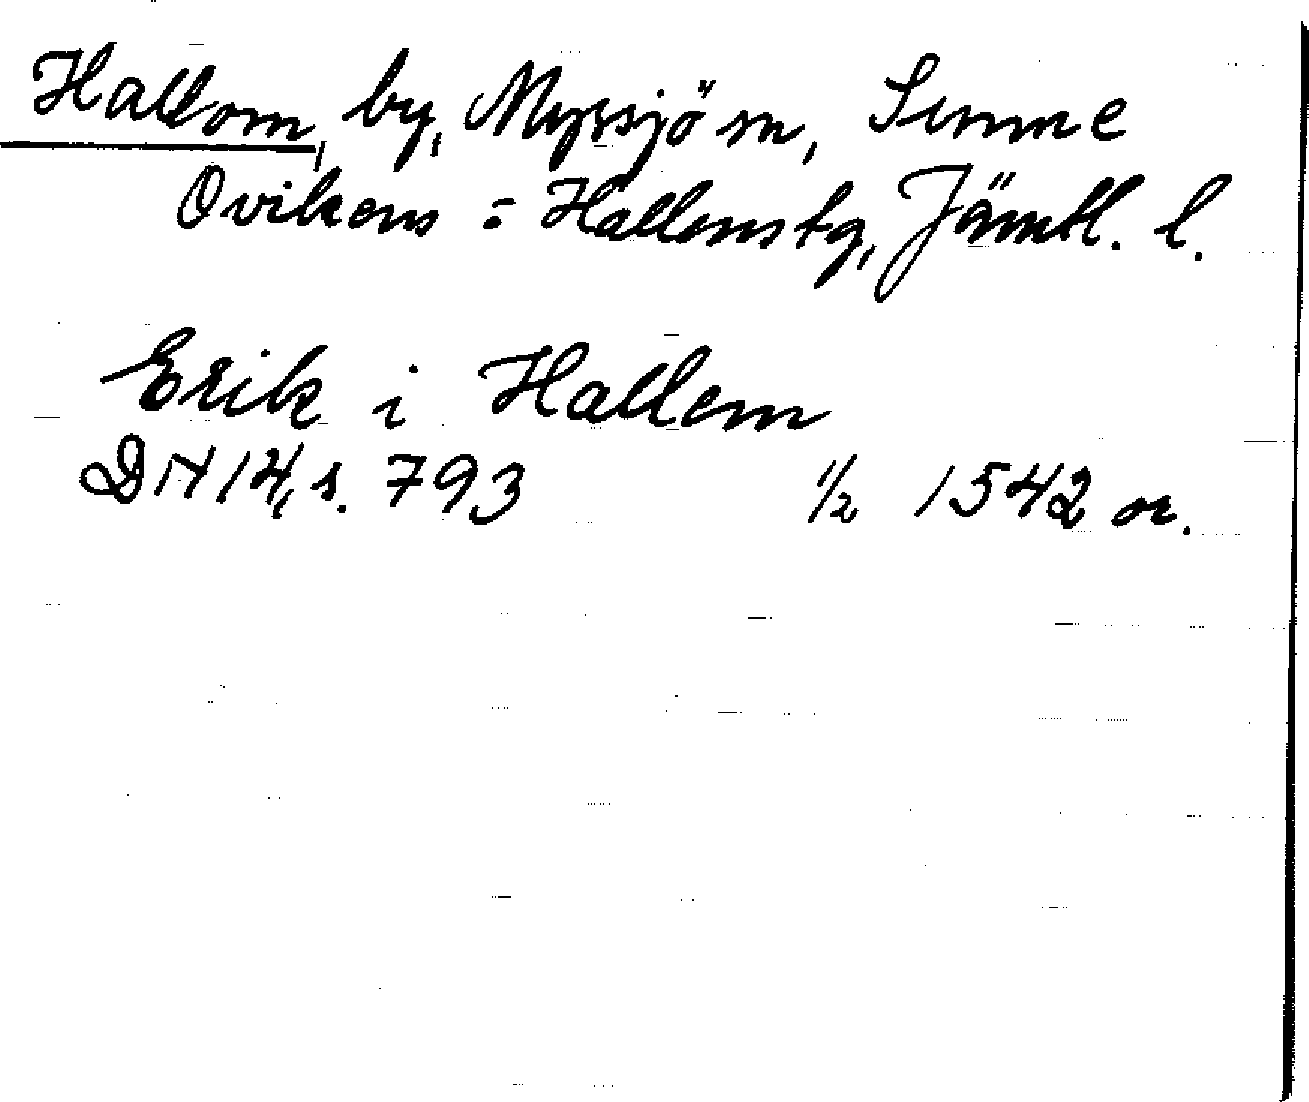 Hallom, by, Myssjö sn, Sunne
Ovikens - Hallens tg, Jämtl. l.
Erik i Hallem
DN 14, s. 793 1/2 1542 or.